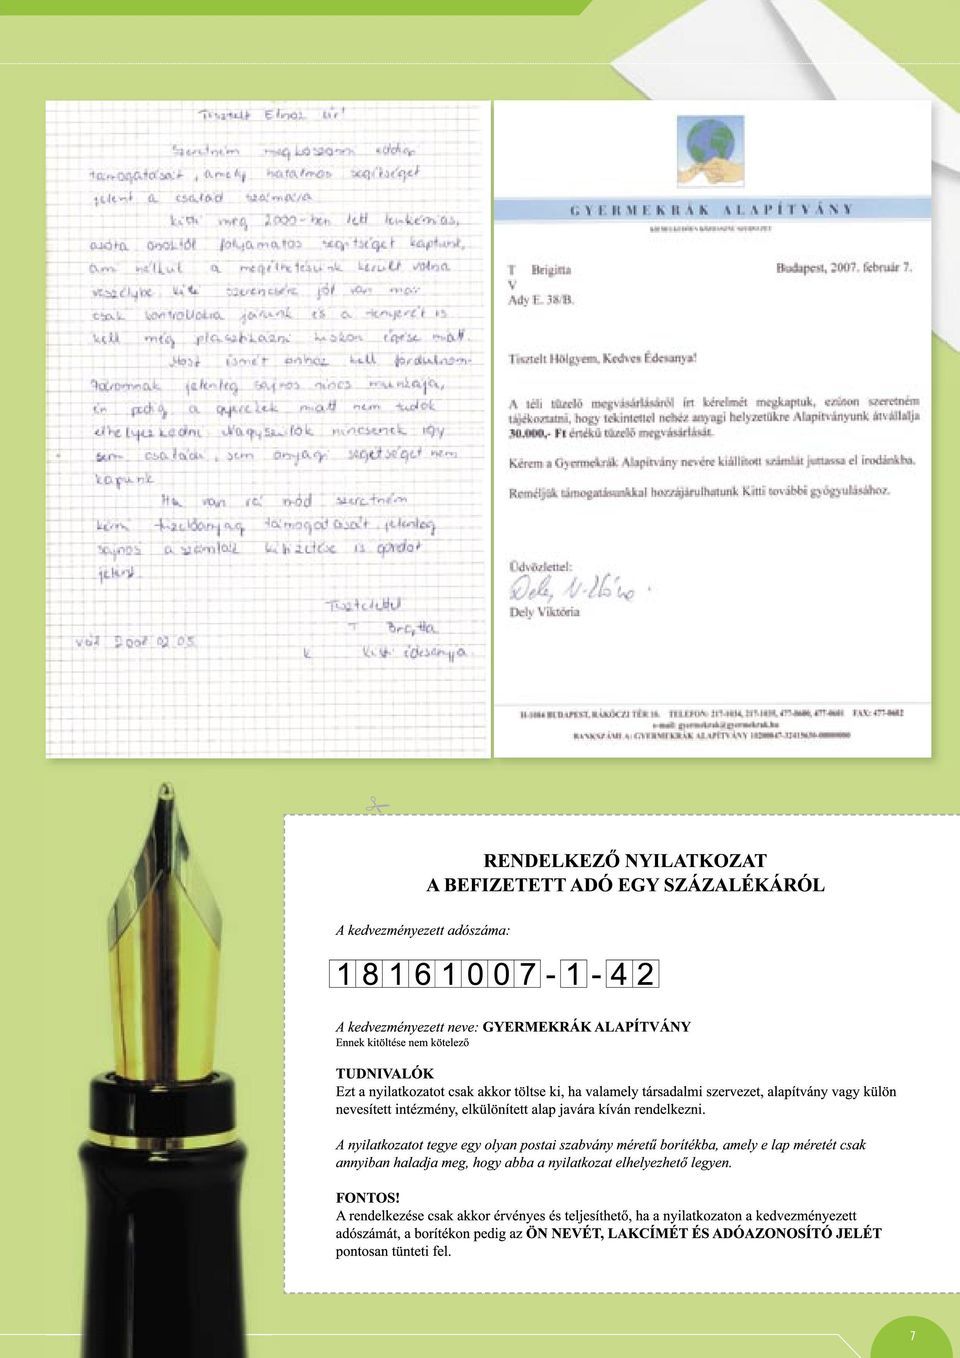 Tisztelt Elnök úr!
Szeretném megköszönni eddigi
támogatását, amely hatalmas segítséget
jelent a család számára
Kitti még 2000-ben lett leukémiás,
azóta önöktől folyamatos segítséget kaptunk,
am nélkül a megélhetésünk került volna
veszélybe. Kitti szerencsére jól van már
csak kontrollokra járunk és a tenyerét is
kell még plasztikázni kiskori égése miatt.
Most ismét önhöz kell fordulnom.
Páromnak jelenleg sajnos nincs munkája,
én pedig a gyerekek miatt nem tudok
elhelyezkedni. Nagyszülők nincsenek így
sem családi, sem anyagi segetséget nem
kapunk.
Ha van rá mód szeretném
kérni tüzelőanyag támogatását, jelenleg
sajnos a számlák kifizetése is gondot
jelent.
Tisztelettel
T Brigitta
K Kitti édesanyja
2007.02.05.
GYERMEKRÁK ALAPÍTVÁNY
KIEMELKEDŐEN KÖZHASZNÚ SZERVEZET
T Brigitta Budapest, 2007. február 7.
V
Ady E. 38/B.
Tisztelt Hölgyem, Kedves Édesanya!
A téli tüzelő megvásárlásáról írt kérelmét megkaptuk, ezúton szeretném
tájékoztatni, hogy tekintettel nehéz anyagi helyzetükre Alapítványunk átvállalja
30.000,- Ft értékű tüzelő megvásárlását.
Kérem a Gyermekrák Alapítvány nevére kiállított számlát juttassa el irodánkba.
Reméljük támogatásunkkal hozzájárulhatunk Kitti további gyógyulásához.
Üdvözlettel:
Dely Viktória
Dely Viktória
H-1084 BUDAPEST, RÁKÓCZI TÉR 10. TELEFON: 217-1034, 217-1035, 477-0600, 477-0601 FAX: 477-0602
e-mail: gyermekrak@gyermekrak.hu
BANKSZÁMLA: GYERMEKRÁK ALAPÍTVÁNY 10200847-32415630-00000000
RENDELKEZŐ NYILATKOZAT
A BEFIZETETT ADÓ EGY SZÁZALÉKÁRÓL
A kedvezményezett adószáma:
18161007-1-42
A kedvezményezett neve: GYERMEKRÁK ALAPÍTVÁNY
Ennek kitöltése nem kötelező
TUDNIVALÓK
Ezt a nyilatkozatot csak akkor töltse ki, ha valamely társadalmi szervezet, alapítvány vagy külön
nevesített intézmény, elkülönített alap javára kíván rendelkezni.
A nyilatkozatot tegye egy olyan postai szabvány méretű borítékba, amely e lap méretét csak
annyiban haladja meg, hogy abba a nyilatkozat elhelyezhető legyen.
FONTOS!
A rendelkezése csak akkor érvényes és teljesíthető, ha a nyilatkozaton a kedvezményezett
adószámát, a borítékon pedig az ÖN NEVÉT, LAKCÍMÉT ÉS ADÓAZONOSÍTÓ JELÉT
pontosan tünteti fel.
7